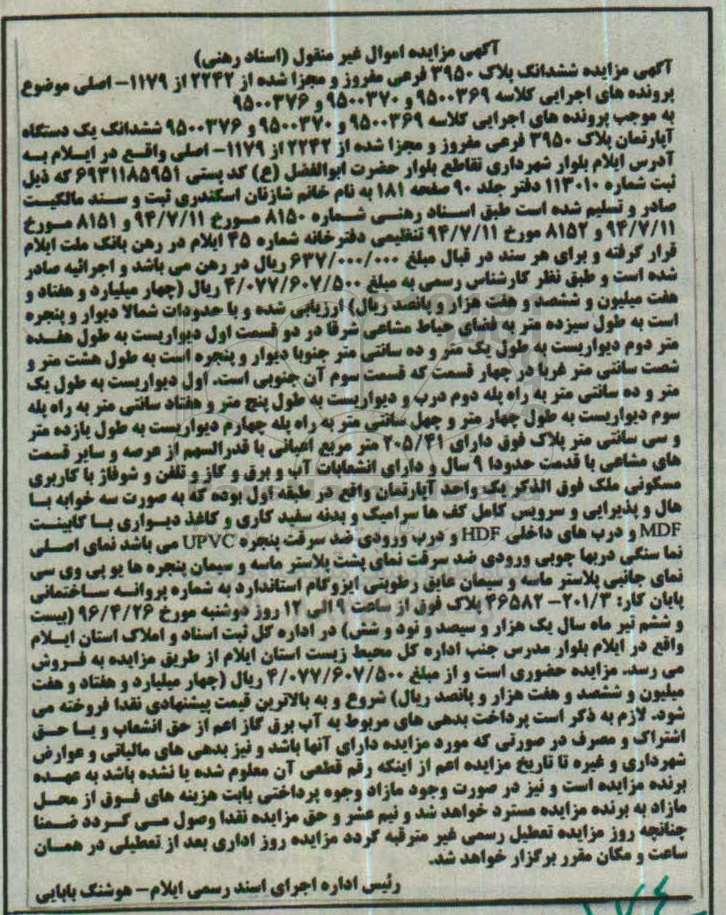 آگهی مزایده اموال غیر منقول (اسناد رهنی)
آگهی مزایده ششدانگ پلاک ۳۹۵۰ فرعی مفروز و مجزا شده از ۲۲۴۲ از ۱۱۷۹- اصلی موضوع
پرونده های اجرایی کلاسه ۹۵۰۰۳۶۹ و ۹۵۰۰۳۷۰ و ۹۵۰۰۳۷۶
به موجب پرونده های اجرایی کلاسه ۹۵۰۰۳۶۹ و ۹۵۰۰۳۷۰ و ۹۵۰۰۳۷۶ ششدانگ یک دستگاه
آپارتمان پلاک ۳۹۵۰ فرعی مفروز و مجزا شده از ۲۲۴۲ از ۱۱۷۹- اصلی واقع در ایلام به
آدرس ایلام بلوار شهرداری تقاطع بلوار حضرت ابوالفضل (ع) کد پستی ۶۹۳۱۱۸۵۹۵۱ که ذیل
ثبت شماره ۱۱۳۰۱۰ دفتر جلد ۹۰ صفحه ۱۸۱ به نام خانم شازنان اسکندری ثبت و سند مالکیت
صادر و تسلیم شده است طبق اسناد رهنی شماره ۸۱۵۰ مورخ ۹۴/۷/۱۱ و ۸۱۵۱ مورخ
۹۴/۷/۱۱ و ۸۱۵۲ مورخ ۹۴/۷/۱۱ تنظیمی دفترخانه شماره ۳۵ ایلام در رهن بانک ملت ایلام
قرار گرفته و برای هر سند در قبال مبلغ ۶۳۷/۰۰۰/۰۰۰ ریال در رهن می باشد و اجرائیه صادر
شده است و طبق نظر کارشناس رسمی به مبلغ ۴/۰۷۷/۶۰۷/۵۰۰ ریال (چهار میلیارد و هفتاد و
هفت میلیون و ششصد و هفت هزار و پانصد ریال) ارزیابی شده و با حدودات شمالا دیوار و پنجره
است به طول سیزده متر به فضای حیاط مشاعی شرقا در دو قسمت اول دیواریست به طول هفده
متر دوم دیواریست به طول یک متر و ده سانتی متر جنوبا دیوار و پنجره است به طول هشت متر و
شصت سانتی متر غربا در چهار قسمت که قسمت سوم آن جنوبی است. اول دیواریست به طول یک
متر و ده سانتی متر به راه پله دوم درب و دیواریست به طول پنج متر و هفتاد سانتی متر به راه پله
سوم دیواریست به طول چهار متر و چهل سانتی متر به راه پله چهارم دیواریست به طول یازده متر
و سی سانتی متر پلاک فوق دارای ۲۰۵/۴۱ متر مربع اعیانی با قدرالسهم از عرصه و سایر قسمت
های مشاعی با قدمت حدودا ۹ سال و دارای انشعابات آب و برق و گاز و تلفن و شوفاژ با کاربری
مسکونی ملک فوق الذکر یک واحد آپارتمان واقع در طبقه اول بوده که به صورت سه خوابه با
هال و پذیرایی و سرویس کامل کف ها سرامیک و بدنه سفید کاری و کاغذ دیواری با کابینت
MDF و درب های داخلی HDF و درب ورودی ضد سرقت پنجره UPVC می باشد نمای اصلی
نما سنگی دربها چوبی ورودی ضد سرقت نمای پشت پلاستر ماسه و سیمان پنجره ها یو پی وی سی
نمای جانبی پلاستر ماسه و سیمان عایق رطوبتی ایزوگام استاندارد به شماره پروانه ساختمانی
پایان کار: ۲۰۱/۳- ۴۶۵۸۲ پلاک فوق از ساعت ۹ الی ۱۲ روز دوشنبه مورخ ۹۶/۴/۲۶ (بیست
و ششم تیر ماه سال یک هزار و سیصد و نود و شش) در اداره کل ثبت اسناد و املاک استان ایلام
واقع در ایلام بلوار مدرس جنب اداره کل محیط زیست استان ایلام از طریق مزایده به فروش
می رسد. مزایده حضوری است و از مبلغ ۴/۰۷۷/۶۰۷/۵۰۰ ریال (چهار میلیارد و هفتاد و هفت
میلیون و ششصد و هفت هزار و پانصد ریال) شروع و به بالاترین قیمت پیشنهادی نقدا فروخته می
شود. لازم به ذکر است پرداخت بدهی های مربوط به آب برق گاز اعم از حق انشعاب و یا حق
اشتراک و مصرف در صورتی که مورد مزایده دارای آنها باشد و نیز بدهی های مالیاتی و عوارض
شهرداری و غیره تا تاریخ مزایده اعم از اینکه رقم قطعی آن معلوم شده یا نشده باشد به عهده
برنده مزایده است و نیز در صورت وجود مازاد وجوه پرداختی بابت هزینه های فوق از محل
مازاد به برنده مزایده مسترد خواهد شد و نیم عشر و حق مزایده نقدا وصول می گردد ضمنا
چنانچه روز مزایده تعطیل رسمی غیر مترقبه گردد مزایده روز اداری بعد از تعطیلی در همان
ساعت و مکان مقرر برگزار خواهد شد.
رئیس اداره اجرای اسند رسمی ایلام- هوشنگ بابایی